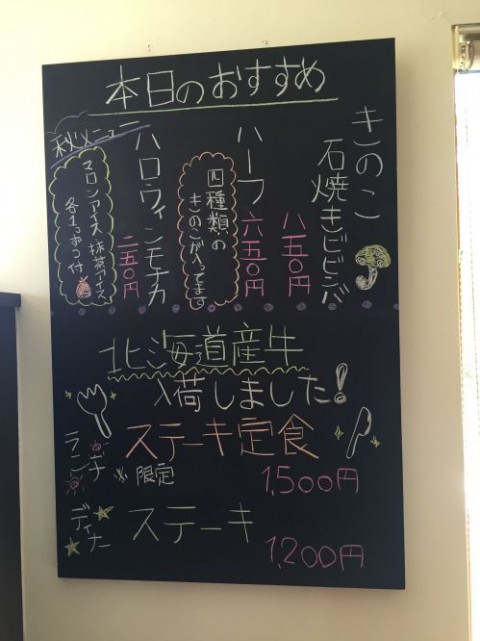 本日のおすすめ
きのこ
石焼きビビンバ
八五〇円
ハーフ
六五〇円
四種類の
きのこが入ってます
秋メニュー
ハロウィンモナカ
二五〇円
マロンアイス 抹茶アイス
各1つずつ付
北海道産牛
入荷しました!
ランチ
ステーキ定食
限定
1,500円
ディナー
ステーキ
1,200円